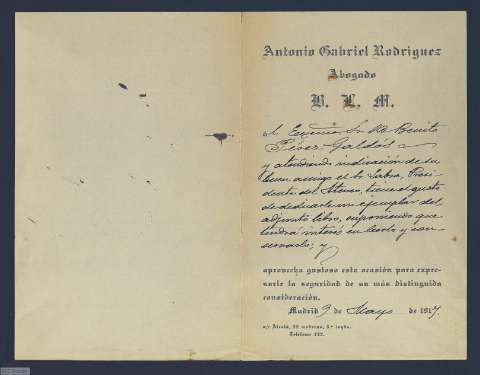 Antonio Gabriel Rodriguez
Abogado
B. L. M.
Al Excmo Sr. D. Benito
Pérez Galdós
y atendiendo indicación de su
buen amigo el Sr Labra, Presi-
dente del Ateneo, tiene el gusto
de dedicarle un ejemplar del
adjunto libro, suponiendo que
tendrá interés en leerlo y con-
servarlo; y
aprovecha gustoso esta ocasión para expre-
sarle la seguridad de su más distinguida
consideración.
Madrid 9 de Mayo de 1917.
s/c Alcalá, 99 moderno, 3.º izqda.
Teléfono